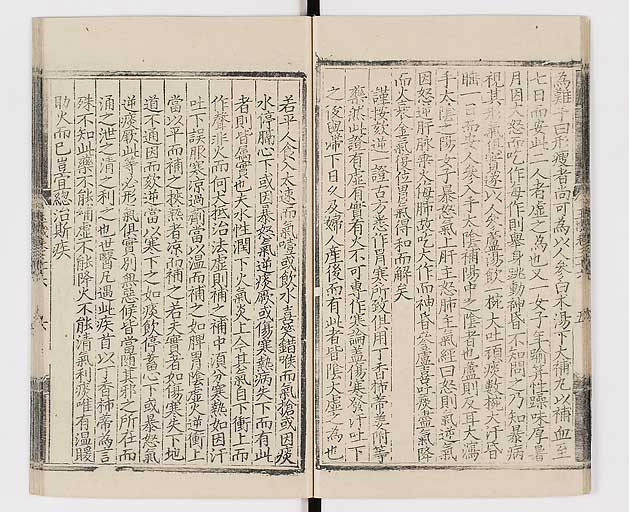 為難予曰形瘦者尚可為以人參白朮湯下大補丸以補血至
七日而安此二人者虛之為也又一女子年踰笄性躁味厚暑
月因大怒而吃作每作則舉身跳動神昏不知問之乃知暴病
視其形氣俱實遂以人參蘆湯飲一椀大吐頑痰數椀大汗昏
睡一日而安人參入手太陰補陽中之陰者也蘆則反耳大瀉
手太陰之陽女子暴怒氣上肝主怒肺主氣經曰怒則氣逆氣
因怒逆肝脈乘火侮肺故吃大作而神昏參蘆喜吐痰盡氣降
而火衰金氣復位胃氣得和而解矣
謹按欬逆一證古方悉作胃寒所致俱用丁香柿蒂姜附等
藥然此證有虛有實有火不可專作寒論蓋傷寒發汗吐下
之後與滯下日久及婦人產後而有此者皆陰大虛之為也
若平人食入太速而氣噎或飲水喜笑錯喉而氣搶或因痰
水停膈心下或因暴怒氣逆痰厥或傷寒熱病失下而有此
者則皆屬實也夫水性潤下火氣炎上今其氣自下衝上而
作聲非火而何大抵治法虛則補之補中須分寒熱如因汗
吐下誤服寒涼過劑當以溫而補之如脾胃陰虛火逆衝上
當以平而補之挾熱者涼而補之若夫實者如傷寒失下地
道不通因而欬逆當以寒下之如痰飲停蓄心下或暴怒氣
逆痰厥此等必形氣俱實別無惡候皆當隨其邪之所在而
涌之泄之清之利之也世醫凡遇此疾首以丁香柿蒂為言
殊不知此藥不能補虛不能降火不能清氣利痰唯有溫暖
助火而已豈宜總治斯疾